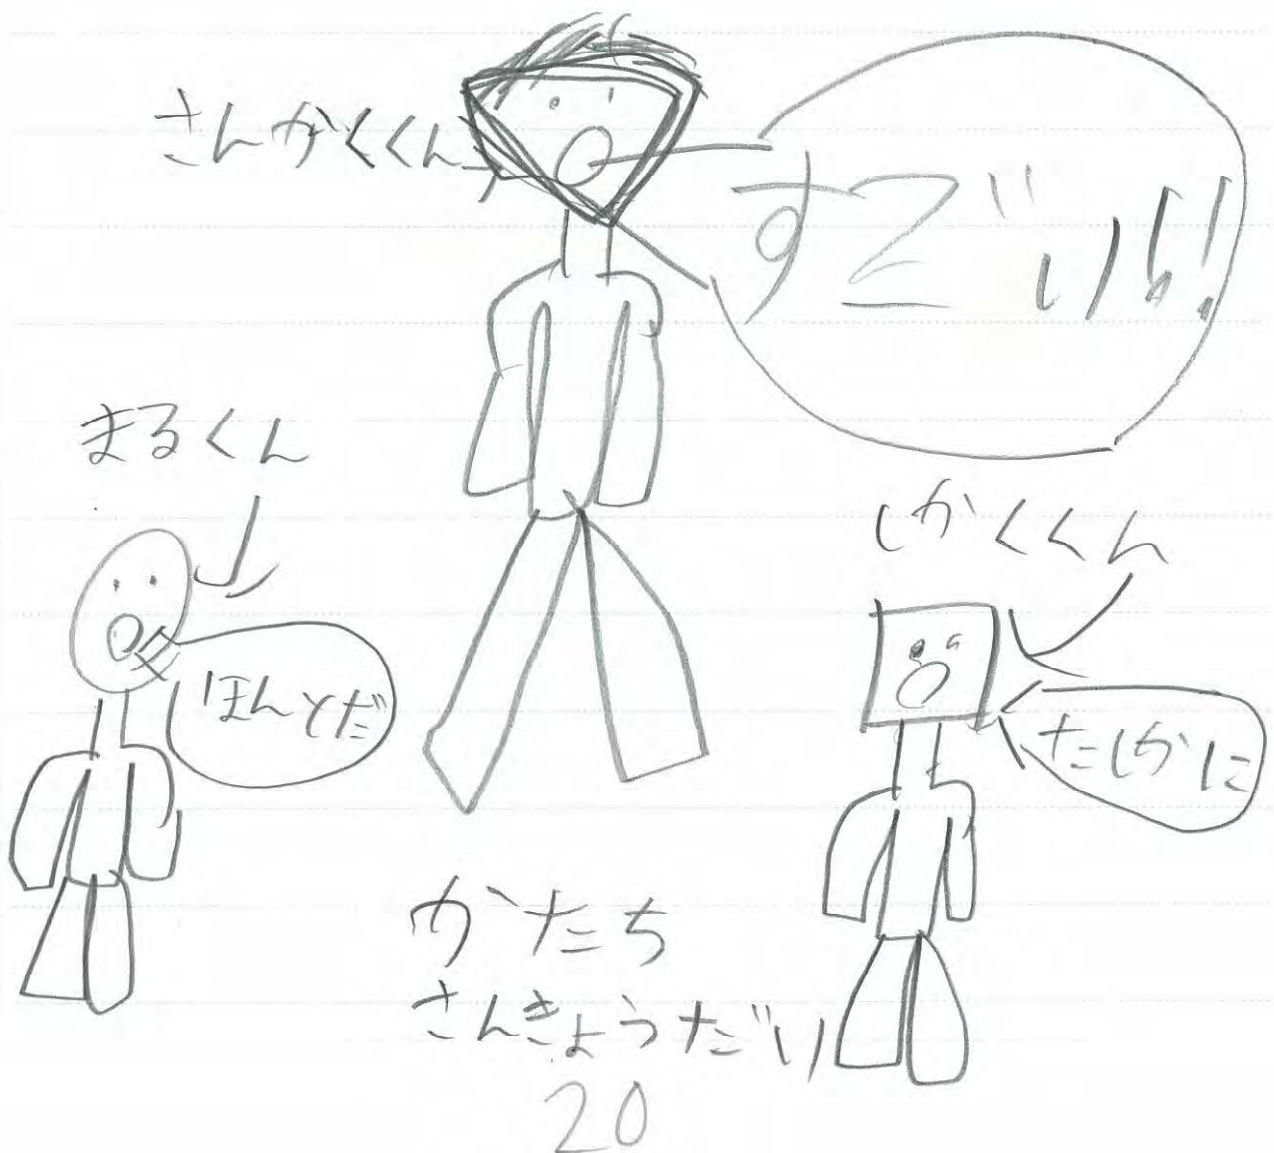 さんかくくん
すごい!!
まるくん
ほんとだ
しかくくん
たしかに
かたち
さんきょうだい
20